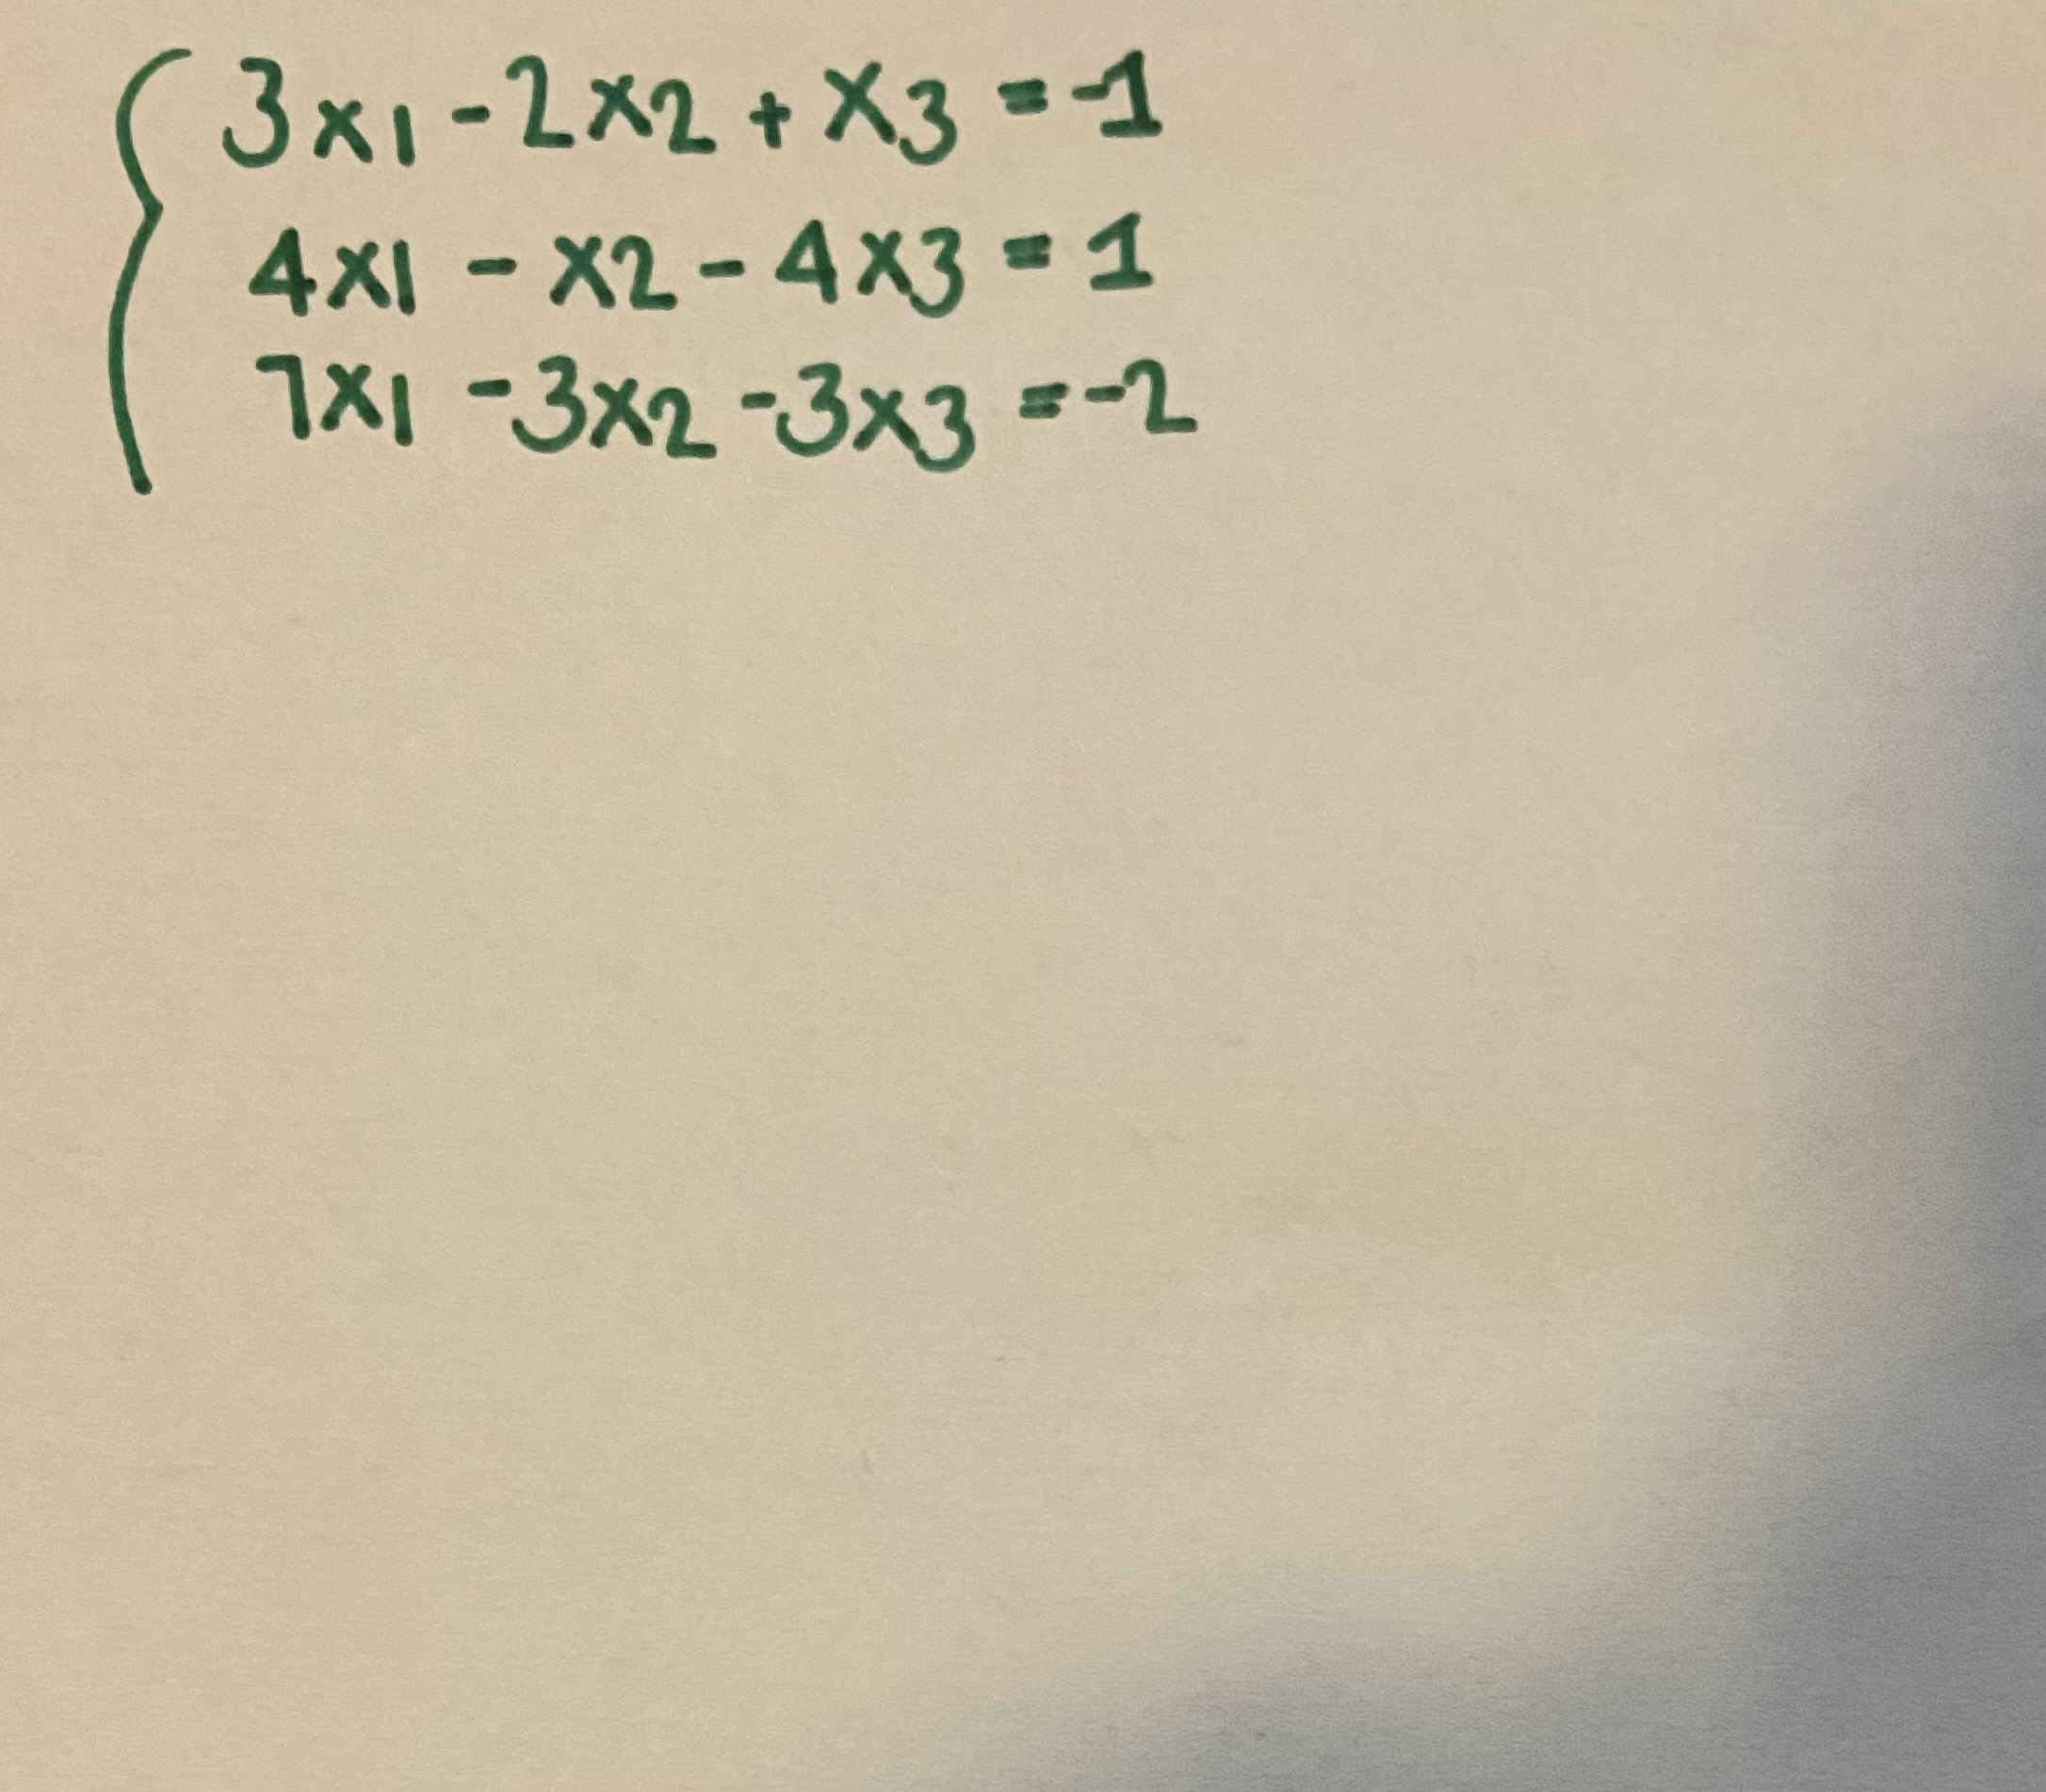 3x1 - 2x2 + x3 = -1
4x1 - x2 - 4x3 = 1
7x1 - 3x2 - 3x3 = -2